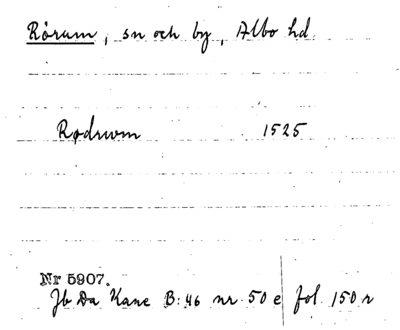 Rörum, sn och by, Albo hd.
Rødrwm 1525
Nr 5907.
Jb Da Kane B:46 nr 50 e fol. 150 r